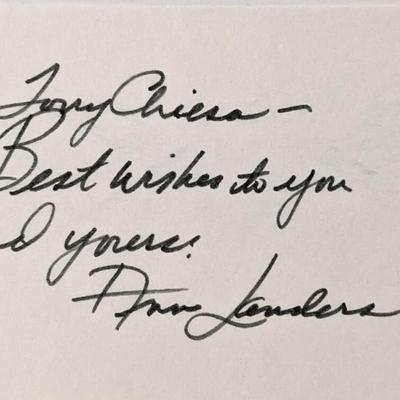 Tony Chiesa —
Best wishes to you
d yours!
Ann Landers